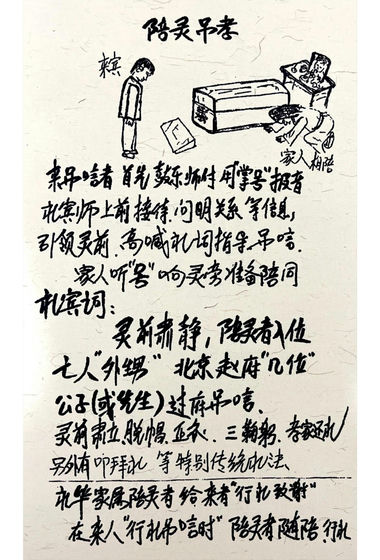 陪灵吊孝
来宾
家人相陪
来吊唁者 首先鼓乐师付用"掌号"报音
礼宾师上前接待，问明关系等信息，
引领灵前，高喊礼词指导吊唁.
家人听"号"响灵旁准备陪同
礼宾词：
灵前肃静，陪灵者入位
七人"外甥" 北京赵府"几位"
公子(或先生)过府吊唁.
灵前肃立，脱帽、正衣、三鞠躬、孝家还礼
另外有叩拜礼 等特别传统礼法.
礼毕家属陪灵者给来者"行礼致谢"
在来人"行礼吊唁时" 陪灵者随陪行礼